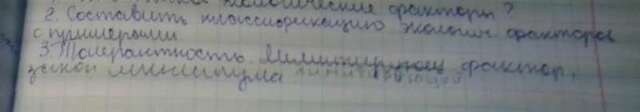 экологические факторы?
2. Составить классификацию эколог. факторов
с примерами
3. Толерантность. Лимитирующ фактор,
закон минимума лимитирующий